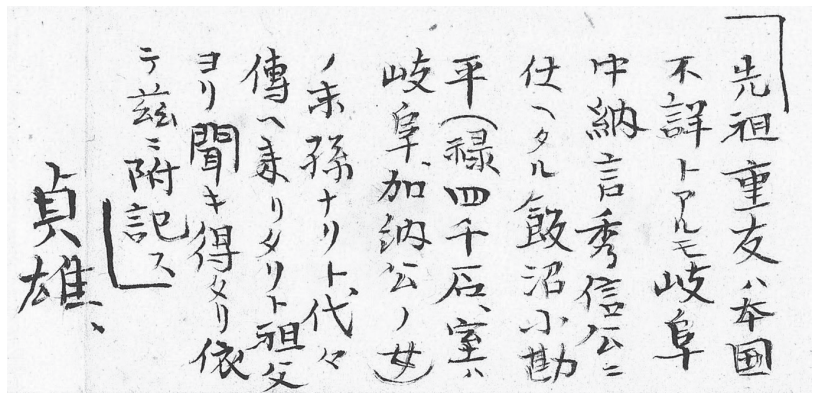 「先祖重友ハ本国
不詳トアルモ岐阜
中納言秀信公ニ
仕ヘタル飯沼小勘
平(禄四千石、室ハ
岐阜、加納公ノ女)
ノ末孫ナリト、代々
傳ヘ来リタリト祖父
ヨリ聞キ得タリ依
テ茲ニ附記ス」
貞雄、